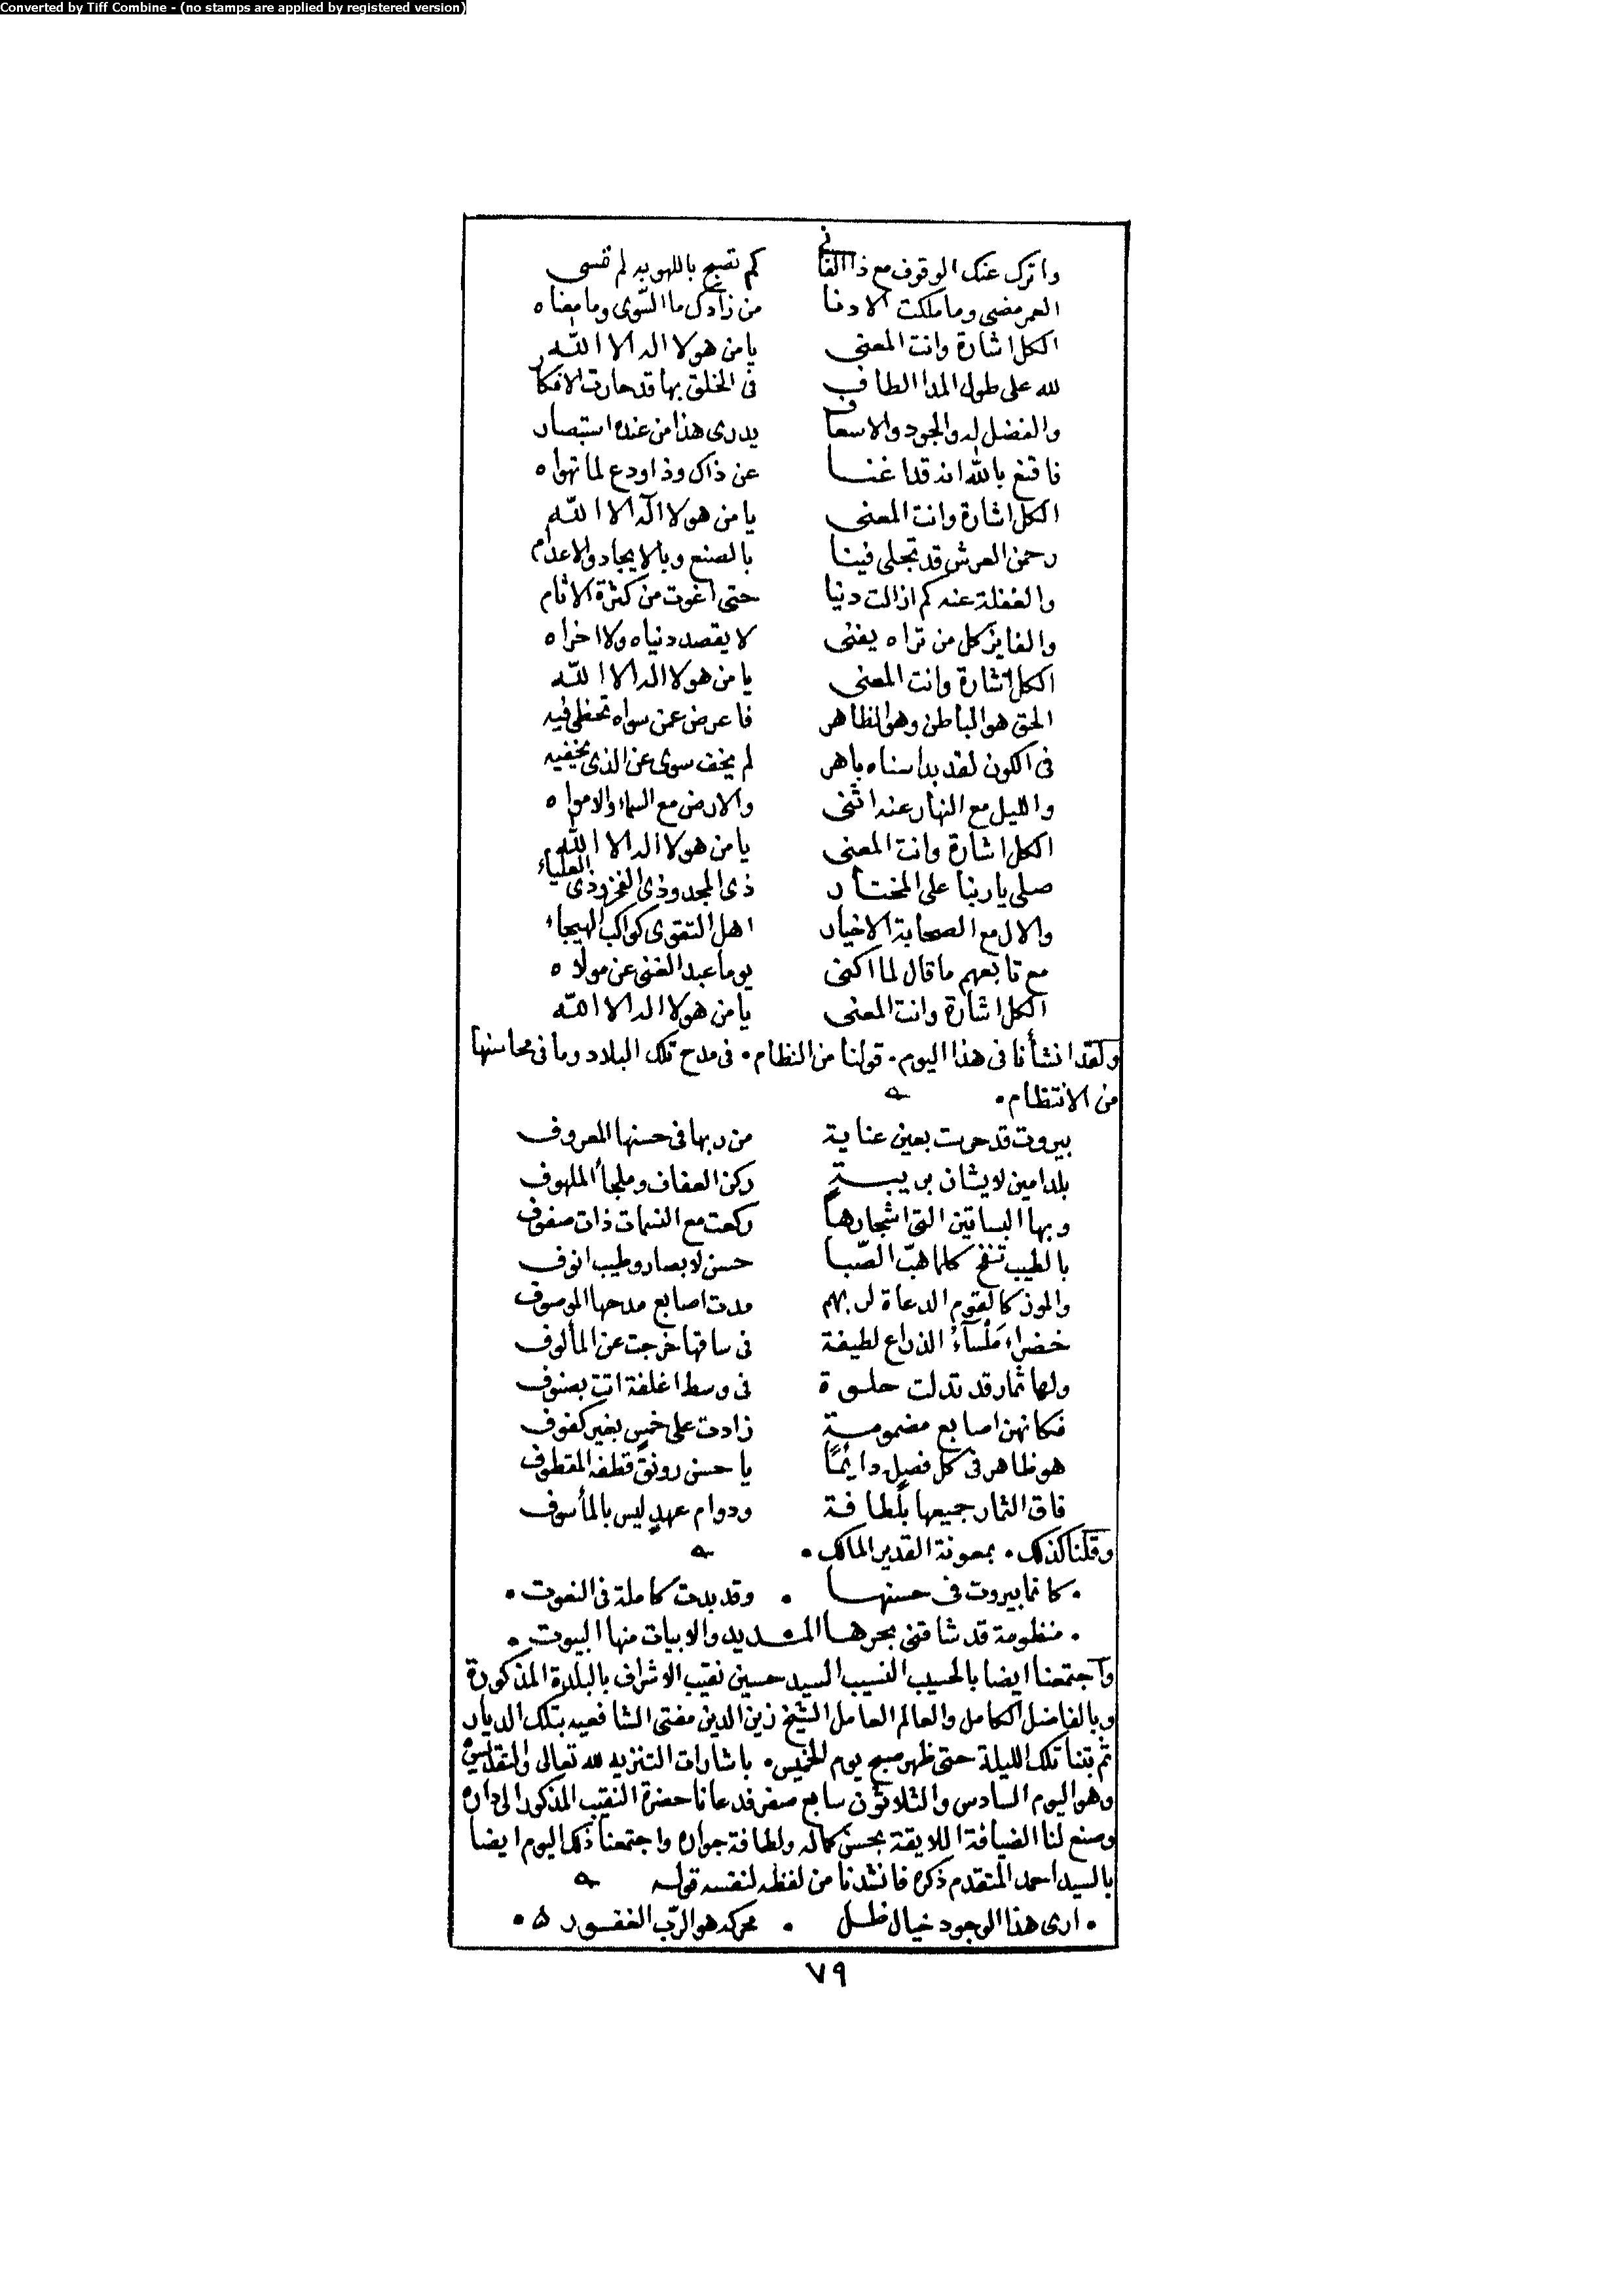 Converted by Tiff Combine - (no stamps are applied by registered version)
واترك عنك الوقوف مع ذا الفاني كم تصبح باللهو به لم تمسى
العمر مضى وما ملكت الادنا من زادك ما السّوى وما معناه
الكل اشارة وانت المعنى يا من هو لا اله الا الله
لله على طول المدا الطاف فى الخلق بها قد حارت الافكار
والفضل له والجود والاسعاف يدرى هذا من عنده استبصار
فاقنع بالله انه قد اغنــا عن ذاك وذا ودع لما تهواه
الكل اشارة وانت المعنى يا من هو لا اله الا الله
رحمن العرش قد تجلى فينا بالصنع وبالايجاد والاعدام
والغفلة عنه كم ازالت دنيا حتى اغوت من كثرة الاثام
والفايز كل من تراه يفنى لا يقصد دنياه ولا اخراه
الكل اشارة وانت المعنى يا من هو لا اله الا الله
الحق هو الباطن وهو الظاهر فاعرض عمن سواه تحظى فيه
فى الكون لقد بدا سناه باهر لم يخف سوى عن الذى يخفيه
والليل مع النهار عنه اثنى والارض مع السماء والامواه
الكل اشارة وانت المعنى يا من هو لا اله الا الله
صلى يا ربنا على المختار ذى المجد وذى الفخر وذى العلياء
والال مع الصحابة الاخيار اهل التقوى كواكب الهيجاء
مع تابعهم ما قال لما اكنى يوما عبد الغنى عن مولاه
الكل اشارة وانت المعنى يا من هو لا اله الا الله
ولقد انشأنا فى هذا اليوم. قولنا من النظام. فى مدح تلك البلاد وما فى محاسنها
من الانتظام.
بيروت قد حرست بعين عناية من ربها فى حسنها المعروف
بلد امين لا يشان بريبــة ركن العفاف وملجأ الملهوف
وبها البساتين التى اشجارها ركعت مع النسمات ذات صفوف
بالطيب تنفح كلما هبّ الصّبا حسن لابصار وطيب انوف
والموز كالقوم الدعاة لربهم مدت اصابع مدحها الموصوف
خضراء مَلْسَآءُ الذراع لطيفة فى ساقها خرجت عن المألوف
ولها ثمار قد تدلت حلوة فى وسط اغلفة اتت بصنوف
فكانهن اصابع مضمومة زادت على خمسٍ بغير كفوف
هو ظاهر فى كل فصلٍ دائمًا يا حسن رونق قطفه المقطوف
فاق الثمار جميعها بلطافة ودوام عهدٍ ليس بالمأسوف
وقلنا كذلك. بمعونة القدير المالك.
. كانما بيروت فى حسنهــا . وقد بدت كاملة فى النعوت .
. منظومة قد شاقنى بحرها المــديد والابيات منها البيوت .
واجتمعنا ايضا بالحسيب النسيب السيد حسين نقيب الاشراف بالبلدة المذكورة
وبالفاضل الكامل والعالم العامل الشيخ زين الدين مفتى الشافعيه بتلك الديار
ثم بتنا تلك الليلة حتى ظهر صبح يوم الخميس. باشارات التنزيه لله تعالى والتقديس
وهو اليوم السادس والثلاثون سابع صفر فدعانا حضرة النقيب المذكور الى داره
وصنع لنا الضيافة اللايقة بحسن كماله ولطافة جواره واجتمعنا ذلك اليوم ايضا
بالسيد احمد المتقدم ذكره فانشدنا من لفظه لنفسه قوله
. ارى هذا الوجود خيال ظــل . محركه هو الرّب الغفــور .
٧٩